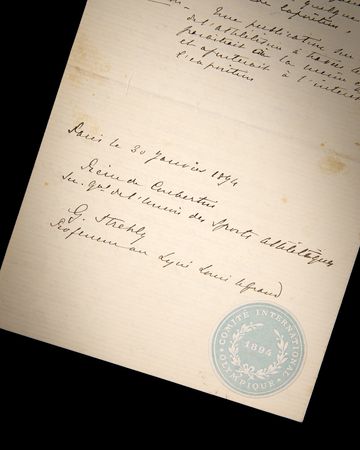 quelques
Une publication sur
de l'athlétisme à travers le
paraitrait
et ajouterait à l'intérêt
l'exposition
Paris le 30 Janvier 1894
Pierre de Coubertin
Sec. gal de l'Union des Sports athlétiques
G. Strehly
Professeur au Lycée Louis le Grand
COMITÉ INTERNATIONAL
1894
OLYMPIQUE